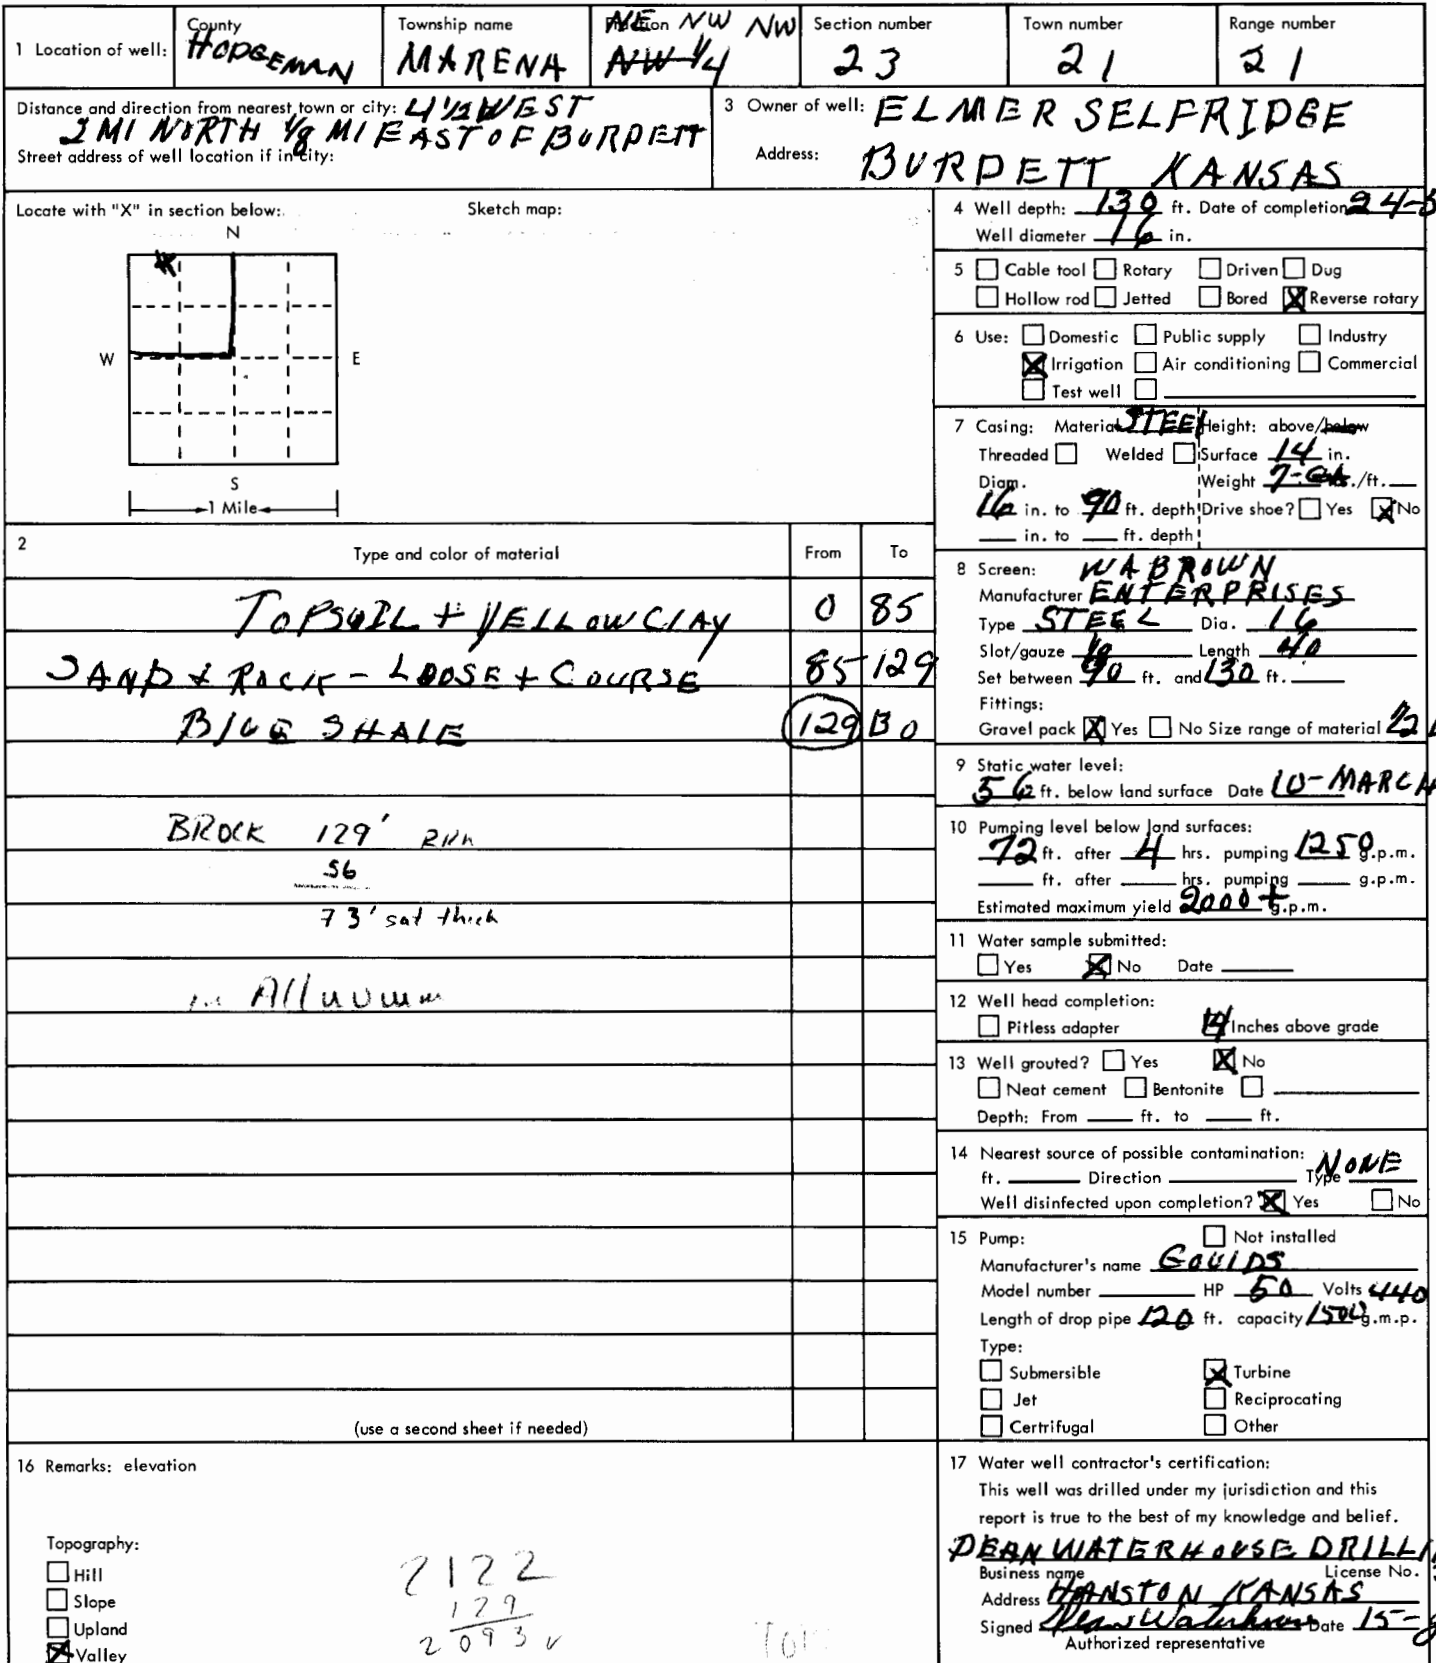 1 Location of well: County HODGEMAN Township name MARENA Fraction NE NW NW NW 1/4 Section number 23 Town number 21 Range number 21
Distance and direction from nearest town or city: 4 1/2 WEST
2 MI NORTH 1/8 MI EAST OF BURDETT
Street address of well location if in city:
3 Owner of well: ELMER SELFRIDGE
Address: BURDETT KANSAS
Locate with "X" in section below: Sketch map:
N
W E
S
1 Mile
4 Well depth: 130 ft. Date of completion 24-
Well diameter 16 in.
5 Cable tool Rotary Driven Dug
Hollow rod Jetted Bored X Reverse rotary
6 Use: Domestic Public supply Industry
X Irrigation Air conditioning Commercial
Test well
7 Casing: Material STEEl Height: above/below
Threaded Welded Surface 14 in.
Diam. Weight 7-GA ./ft.
16 in. to 90 ft. depth Drive shoe? Yes X No
in. to ft. depth
2 Type and color of material From To
TOPSOIL + YELLOW CLAY 0 85
SAND & ROCK - LOOSE + COURSE 85 129
BlUE SHAlE 129 130
BROCK 129'
56
73' sat thick
in Alluvium
8 Screen: WA BROWN
Manufacturer ENTERPRISES
Type STEEL Dia. 16
Slot/gauze 1/8 Length 40
Set between 90 ft. and 130 ft.
Fittings:
Gravel pack X Yes No Size range of material
9 Static water level:
56 ft. below land surface Date 10-MARCH
10 Pumping level below land surfaces:
72 ft. after 4 hrs. pumping 1250 g.p.m.
ft. after hrs. pumping g.p.m.
Estimated maximum yield 2000+ g.p.m.
11 Water sample submitted:
Yes X No Date
12 Well head completion:
Pitless adapter 14 Inches above grade
13 Well grouted? Yes X No
Neat cement Bentonite
Depth: From ft. to ft.
14 Nearest source of possible contamination:
ft. Direction Type NONE
Well disinfected upon completion? X Yes No
15 Pump: Not installed
Manufacturer's name GOUlDS
Model number HP 50 Volts 440
Length of drop pipe 120 ft. capacity 1500 g.m.p.
Type:
Submersible X Turbine
Jet Reciprocating
Certrifugal Other
(use a second sheet if needed)
16 Remarks: elevation
Topography:
Hill
Slope
Upland
X Valley
2122
129
2093
17 Water well contractor's certification:
This well was drilled under my jurisdiction and this
report is true to the best of my knowledge and belief.
DEAN WATERHOUSE DRILLI
Business name License No.
Address HANSTON KANSAS
Signed Dean Waterhouse Date 15-
Authorized representative